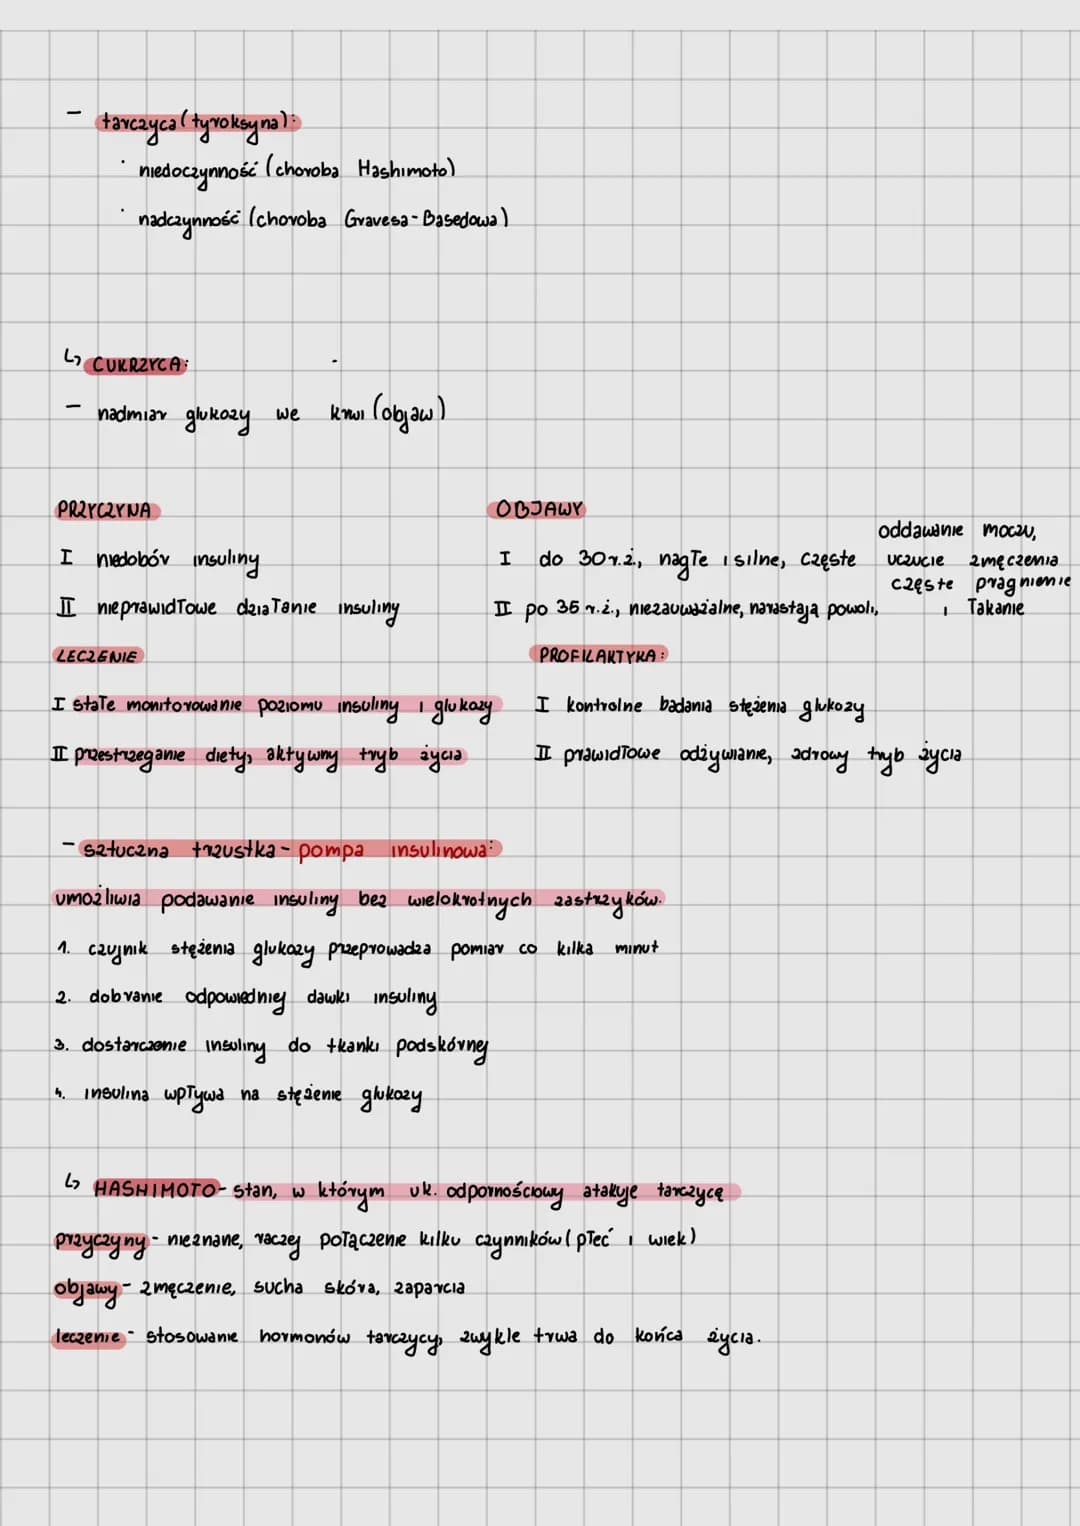 - tarczyca (tyroksyna):
· niedoczynność (choroba Hashimoto)
· nadczynność (choroba Gravesa-Basedowa)
↳ CUKRZYCA:
- nadmiar glukozy we krwi (objaw)
PRZYCZYNA
I niedobór insuliny
II nieprawidłowe działanie insuliny
OBJAWY
I do 30 r.ż., nagłe i silne, częste oddawanie moczu,
uczucie zmęczenia
częste pragnienie
i łakanie
II po 35 r.ż., niezauważalne, narastają powoli,
LECZENIE
I stałe monitorowanie poziomu insuliny i glukozy
II przestrzeganie diety, aktywny tryb życia
PROFILAKTYKA:
I kontrolne badania stężenia glukozy
II prawidłowe odżywianie, zdrowy tryb życia
- sztuczna trzustka - pompa insulinowa:
umożliwia podawanie insuliny bez wielokrotnych zastrzyków.
1. czujnik stężenia glukozy przeprowadza pomiar co kilka minut
2. dobranie odpowiedniej dawki insuliny
3. dostarczenie insuliny do tkanki podskórnej
4. insulina wpływa na stężenie glukozy
↳ HASHIMOTO - stan, w którym uk. odpornościowy atakuje tarczycę
przyczyny - nieznane, raczej połączenie kilku czynników (płeć i wiek)
objawy - zmęczenie, sucha skóra, zaparcia
leczenie - stosowanie hormonów tarczycy, zwykle trwa do końca życia.